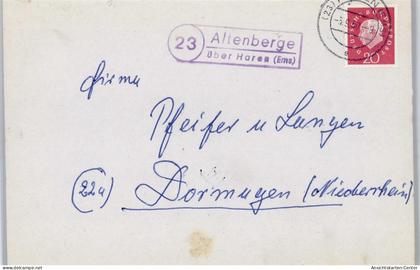 23
Altenberge
über Haren (Ems)
(23)
DEUTSCHE BUNDESPOST
20
Firma
Pfeifer u Langen
(22a) Dormagen (Niederrhein)
Ansichtskarten-Center